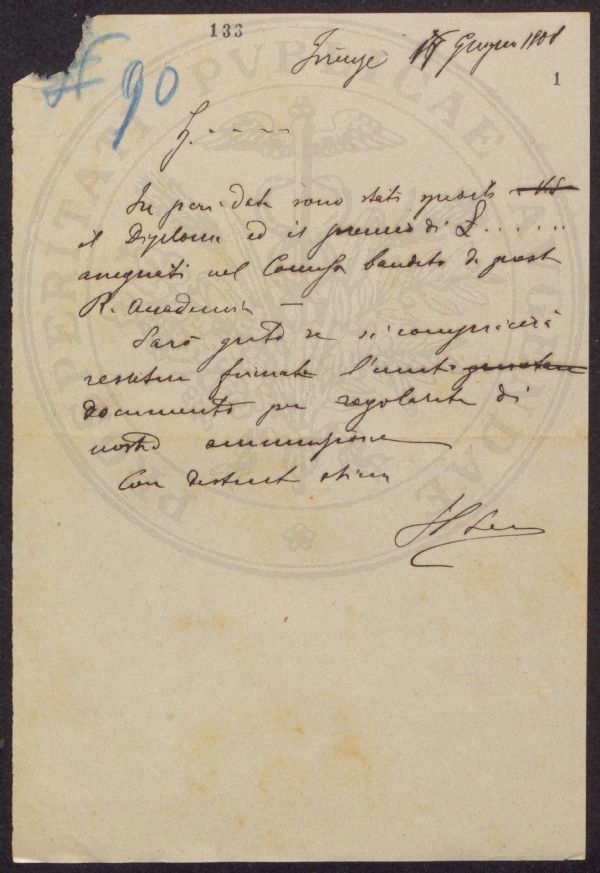 133
N 90
Firenze Giugno 1908
1
S. - - - -
In pari data sono stati spediti
il Diploma ed il premio di L. . . . . .
assegnati nel Concorso bandito da
R. Accademia —
Sarò grato se si compiacerà
restituire firmato l'unito
documento per regolarità di
nostra
Con distinta stima